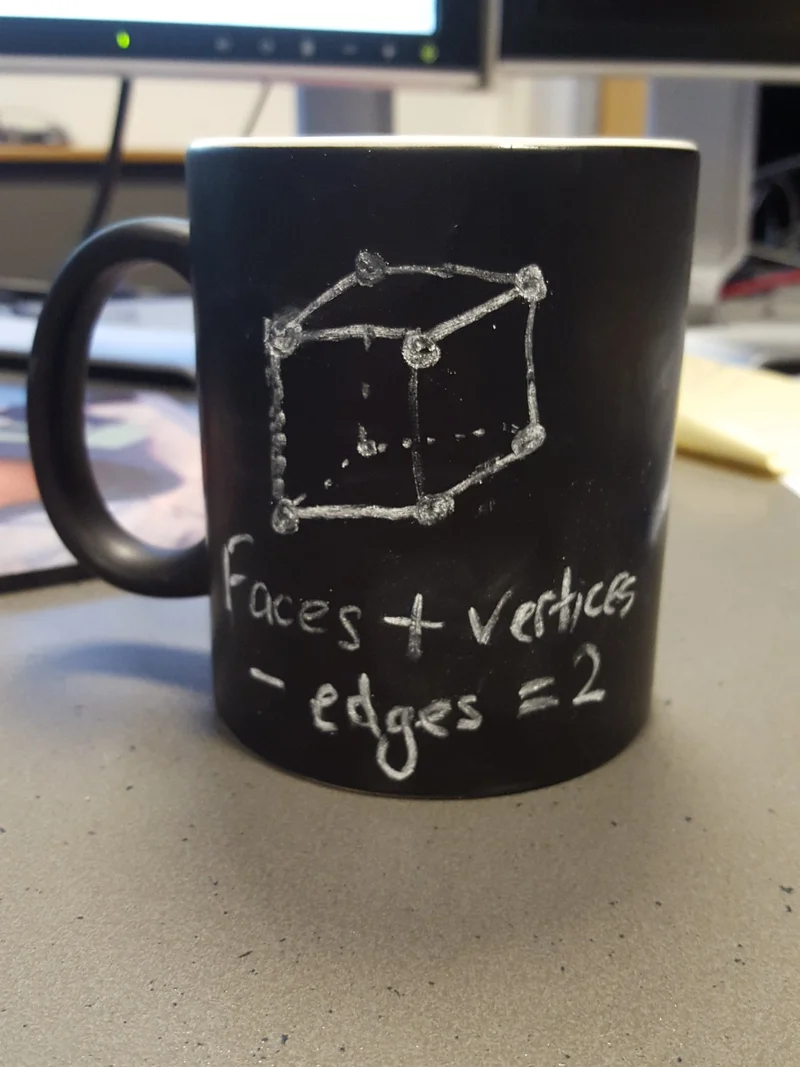 Faces + vertices
- edges = 2